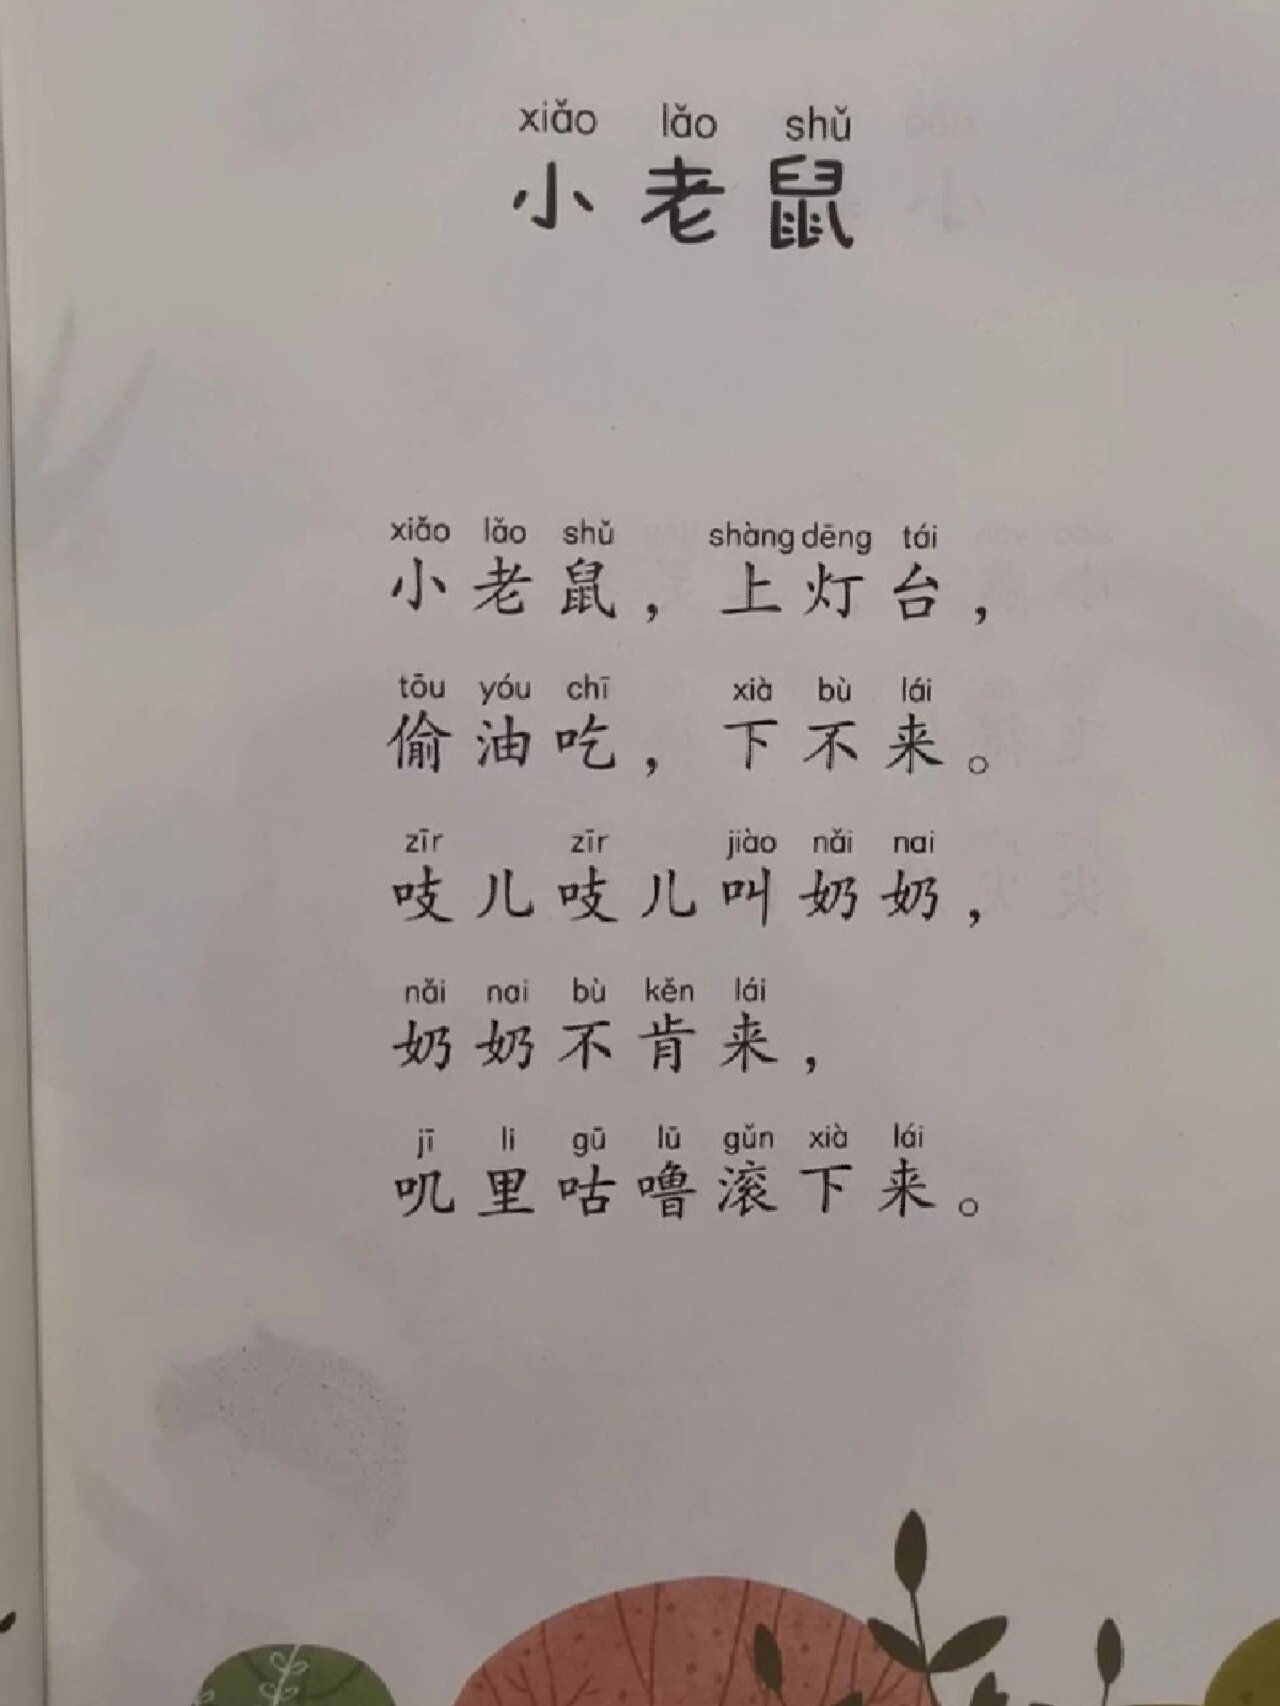 xiǎo lǎo shǔ
小老鼠
xiǎo lǎo shǔ shàng dēng tái
小老鼠，上灯台，
tōu yóu chī xià bù lái
偷油吃，下不来。
zīr zīr jiào nǎi nai
吱儿吱儿叫奶奶，
nǎi nai bù kěn lái
奶奶不肯来，
jī li gū lū gǔn xià lái
叽里咕噜滚下来。